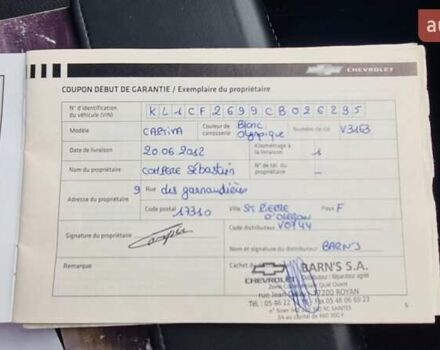 au
CHEVROLET
COUPON DÉBUT DE GARANTIE / Exemplaire du propriétaire
N° d'identification du véhicule (VIN) KL1CF2699CB026295
Modèle CAPTIVA Couleur de carrosserie Blanc Olympique Numéro de clé V3163
Date de livraison 20.06.2012 Kilométrage à la livraison 1
Nom du propriétaire COMPERE Sébastien N° de tél. du propriétaire -
Adresse du propriétaire 9 Rue des garnaudières
Code postal 17310 Ville ST PIERRE D'OLERON Pays F
Signature du propriétaire Code distributeur V0744
Nom et signature du distributeur BARN'S
Remarque Cachet
CHEVROLET
BARN'S S.A.
Distributeur / Réparateur agréé
Zone Ouest
rue 17200 ROYAN
Tél. : 05 46 22 Fax 05 46 06 69 23
RC SAINTES
SA au capital de
5